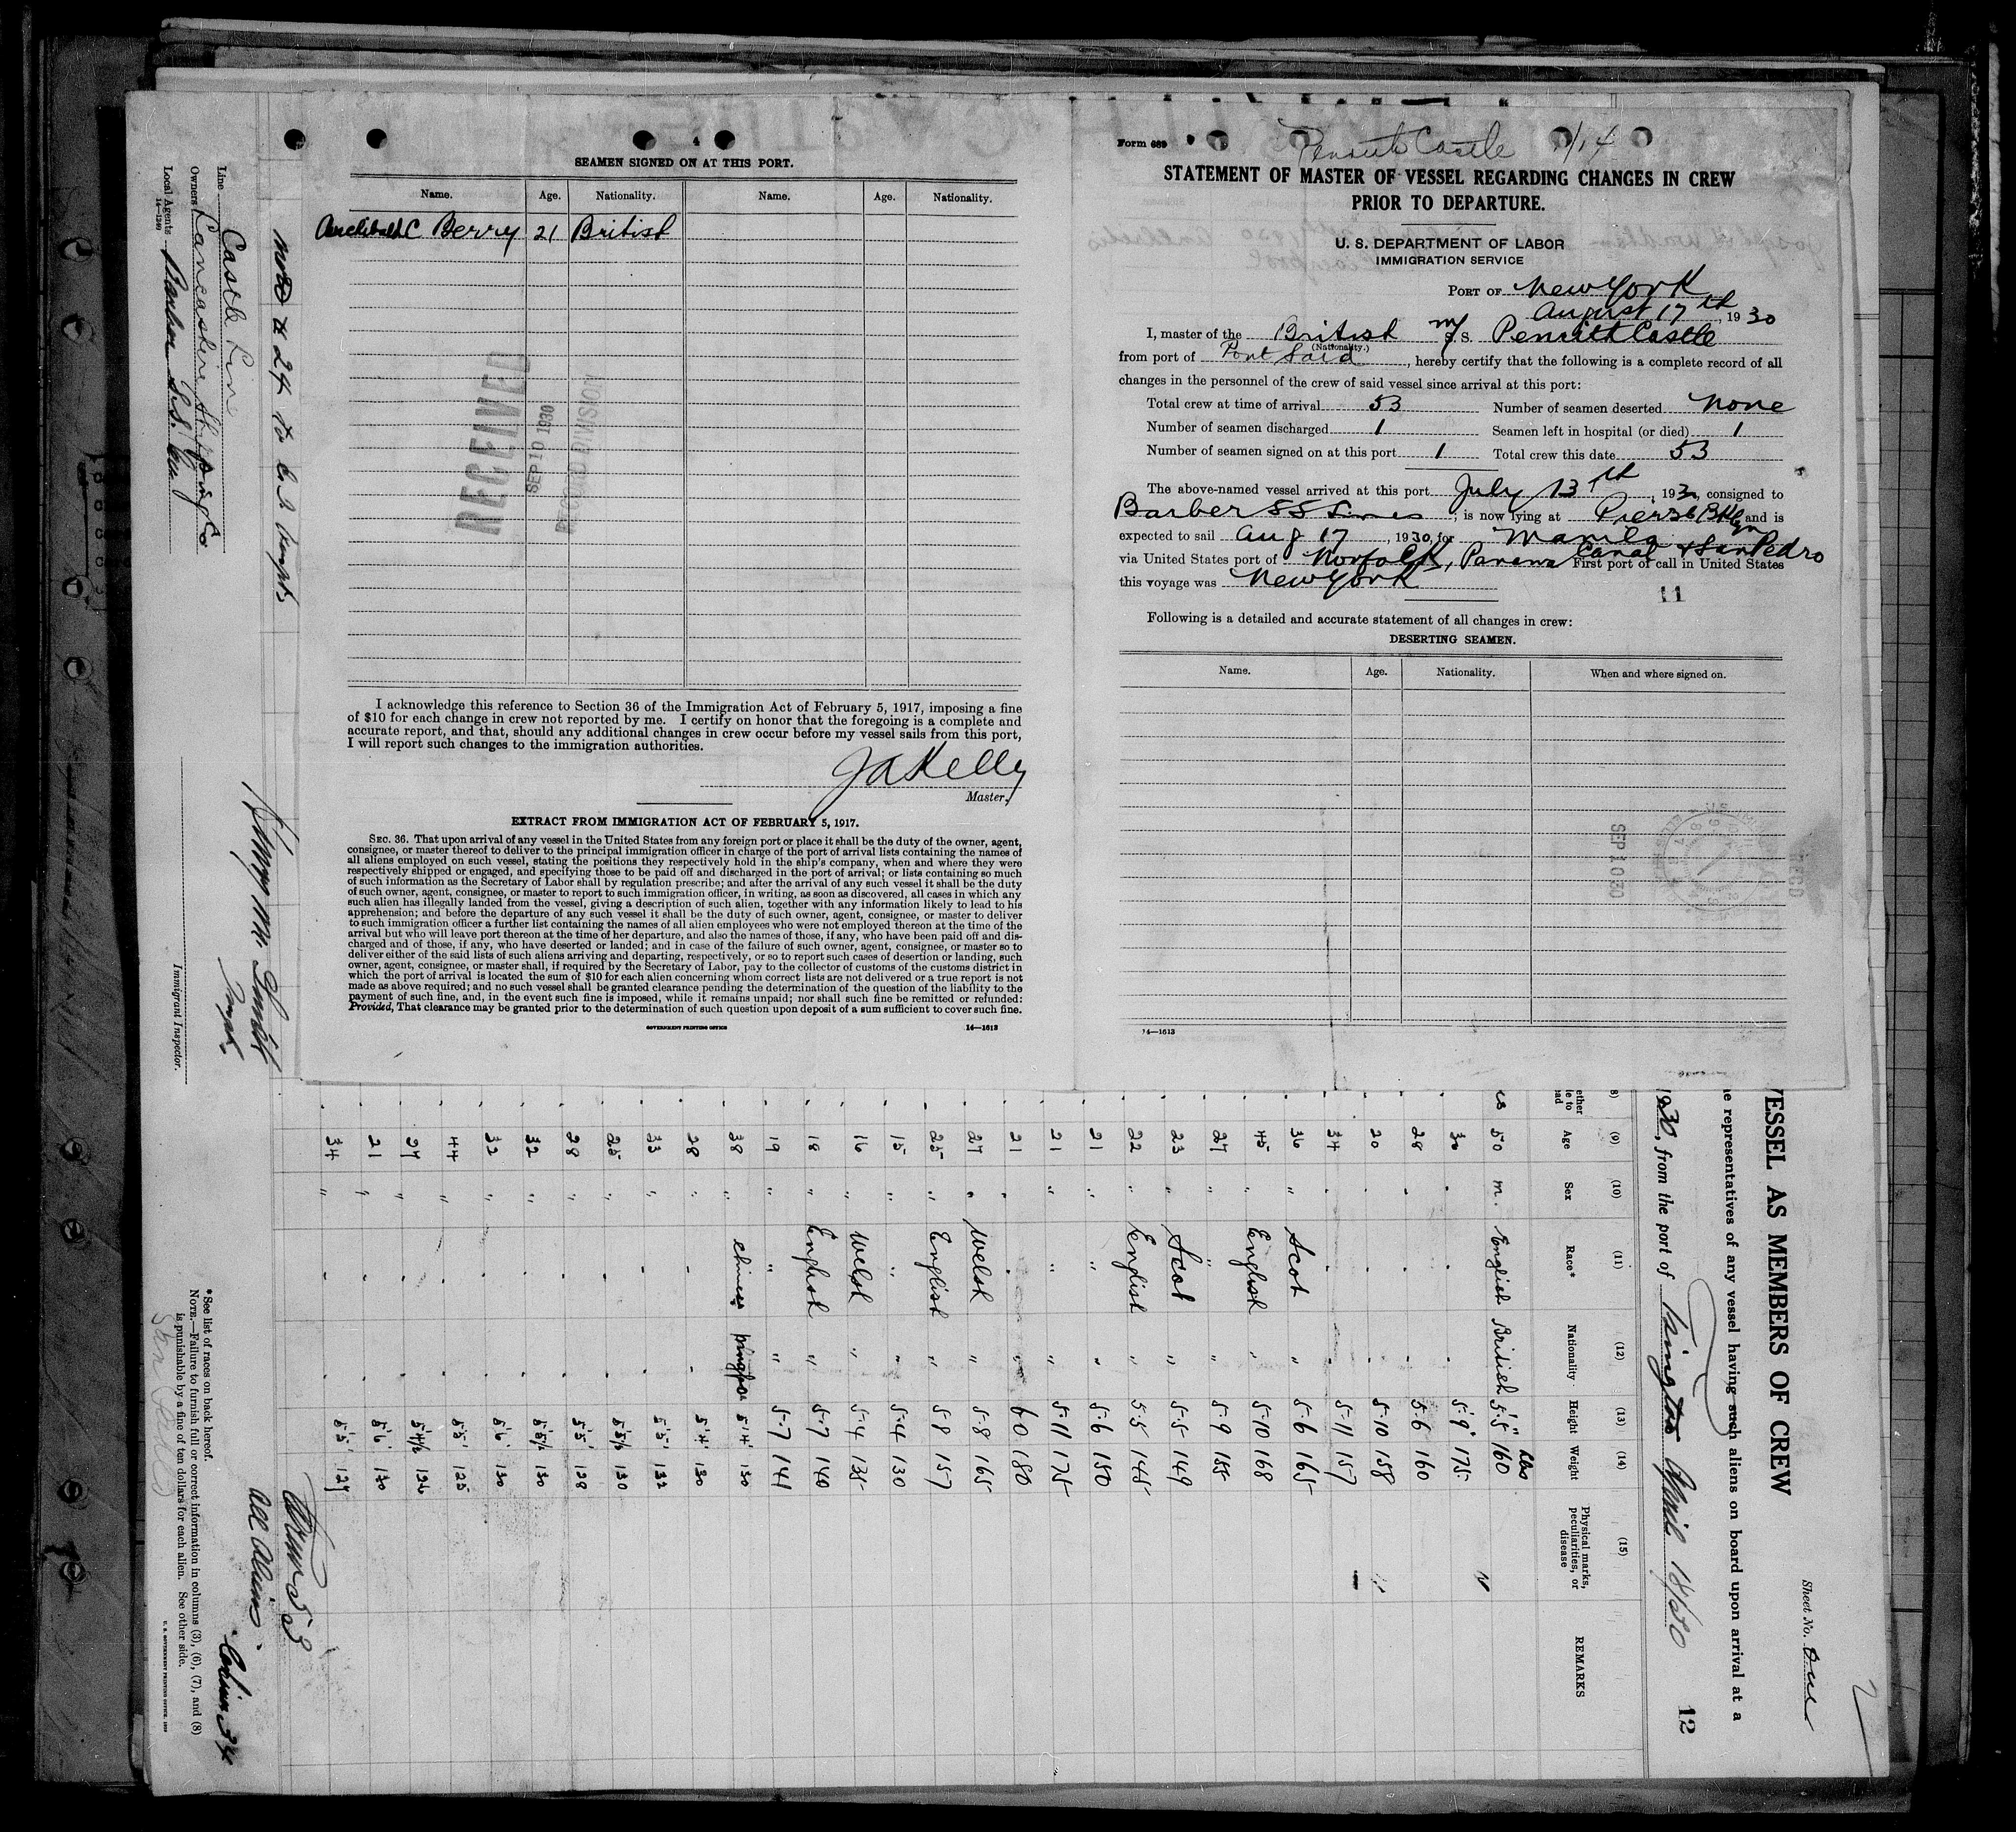 SEAMEN SIGNED ON AT THIS PORT.
Name. Age. Nationality. Name. Age. Nationality.
Archibald C Berry 21 British
RECEIVED
SEP 10 1930
RECORD DIVISION
I acknowledge this reference to Section 36 of the Immigration Act of February 5, 1917, imposing a fine
of $10 for each change in crew not reported by me. I certify on honor that the foregoing is a complete and
accurate report, and that, should any additional changes in crew occur before my vessel sails from this port,
I will report such changes to the immigration authorities.
JA Kelly
Master.
EXTRACT FROM IMMIGRATION ACT OF FEBRUARY 5, 1917.
SEC. 36. That upon arrival of any vessel in the United States from any foreign port or place it shall be the duty of the owner, agent,
consignee, or master thereof to deliver to the principal immigration officer in charge of the port of arrival lists containing the names of
all aliens employed on such vessel, stating the positions they respectively hold in the ship's company, when and where they were
respectively shipped or engaged, and specifying those to be paid off and discharged in the port of arrival; or lists containing so much
of such information as the Secretary of Labor shall by regulation prescribe; and after the arrival of any such vessel it shall be the duty
of such owner, agent, consignee, or master to report to such immigration officer, in writing, as soon as discovered, all cases in which any
such alien has illegally landed from the vessel, giving a description of such alien, together with any information likely to lead to his
apprehension; and before the departure of any such vessel it shall be the duty of such owner, agent, consignee, or master to deliver
to such immigration officer a further list containing the names of all alien employees who were not employed thereon at the time of the
arrival but who will leave port thereon at the time of her departure, and also the names of those, if any, who have been paid off and dis-
charged and of those, if any, who have deserted or landed; and in case of the failure of such owner, agent, consignee, or master so to
deliver either of the said lists of such aliens arriving and departing, respectively, or so to report such cases of desertion or landing, such
owner, agent, consignee, or master shall, if required by the Secretary of Labor, pay to the collector of customs of the customs district in
which the port of arrival is located the sum of $10 for each alien concerning whom correct lists are not delivered or a true report is not
made as above required; and no such vessel shall be granted clearance pending the determination of the question of the liability to the
payment of such fine, and, in the event such fine is imposed, while it remains unpaid; nor shall such fine be remitted or refunded:
Provided, That clearance may be granted prior to the determination of such question upon deposit of a sum sufficient to cover such fine.
GOVERNMENT PRINTING OFFICE 14—1613
Form 689
Penrith Castle 1/14
STATEMENT OF MASTER OF VESSEL REGARDING CHANGES IN CREW
PRIOR TO DEPARTURE.
U. S. DEPARTMENT OF LABOR
IMMIGRATION SERVICE
PORT OF New York
August 17th, 1930
I, master of the British M/S. S. Penrith Castle
(Nationality.)
from port of Port Said, hereby certify that the following is a complete record of all
changes in the personnel of the crew of said vessel since arrival at this port:
Total crew at time of arrival 53 Number of seamen deserted None
Number of seamen discharged 1 Seamen left in hospital (or died) 1
Number of seamen signed on at this port 1 Total crew this date 53
The above-named vessel arrived at this port July 13th, 1930, consigned to
Barber SS Lines, is now lying at Pier 36 Bklyn and is
expected to sail Aug 17, 1930, for Manila
via United States port of Norfolk, Panama Canal & San Pedro First port of call in United States
this voyage was New York
11
Following is a detailed and accurate statement of all changes in crew:
DESERTING SEAMEN.
Name. Age. Nationality. When and where signed on.
SEP 10 30
REC'D
14—1613
Line Castle Line
Owners Lancashire Shipping Co
Local Agents Barber S.S. Lines
14—1240
Immigrant Inspector.
Sheet No. One
VESSEL AS MEMBERS OF CREW
he representatives of any vessel having such aliens on board upon arrival at a
1930, from the port of Kingston April 18/30
12
(9) (10) (11) (12) (13) (14) (15)
Age Sex Race* Nationality Height Weight Physical marks, peculiarities, or disease REMARKS
Lbs
50 m. English British 5'5" 160
30 5'9" 175
28 5-6 160
20 5-10 158
34 5-11 157
36 " Scot " 5-6 165
45 " English " 5-10 168
27 " " " 5-9 155
23 " Scot " 5-5 149
22 " English " 5-5 145
21 " " " 5-6 150
21 " " " 5-11 175
21 " " " 60 180
27 " Welsh " 5-8 165
25 " English " 5-8 157
15 " " " 5-4 130
16 " Welsh " 5-4 135
18 " English " 5-7 140
19 " " " 5-7 141
38 " Chinese 5'4" 130
28 " 5'4" 130
33 " 5'5" 132
25 " 5'5½ 130
28 " 5'5" 128
32 " 5'5½ 130
32 " 5'6" 130
44 " 5'5" 125
27 " 5'4½ 126
21 " 5'6" 130
34 " 5'5" 127
All Aliens
*See list of races on back hereof.
NOTE.—Failure to furnish full or correct information in columns (3), (6), (7), and (8)
is punishable by a fine of ten dollars for each alien. See other side.
U. S. GOVERNMENT PRINTING OFFICE